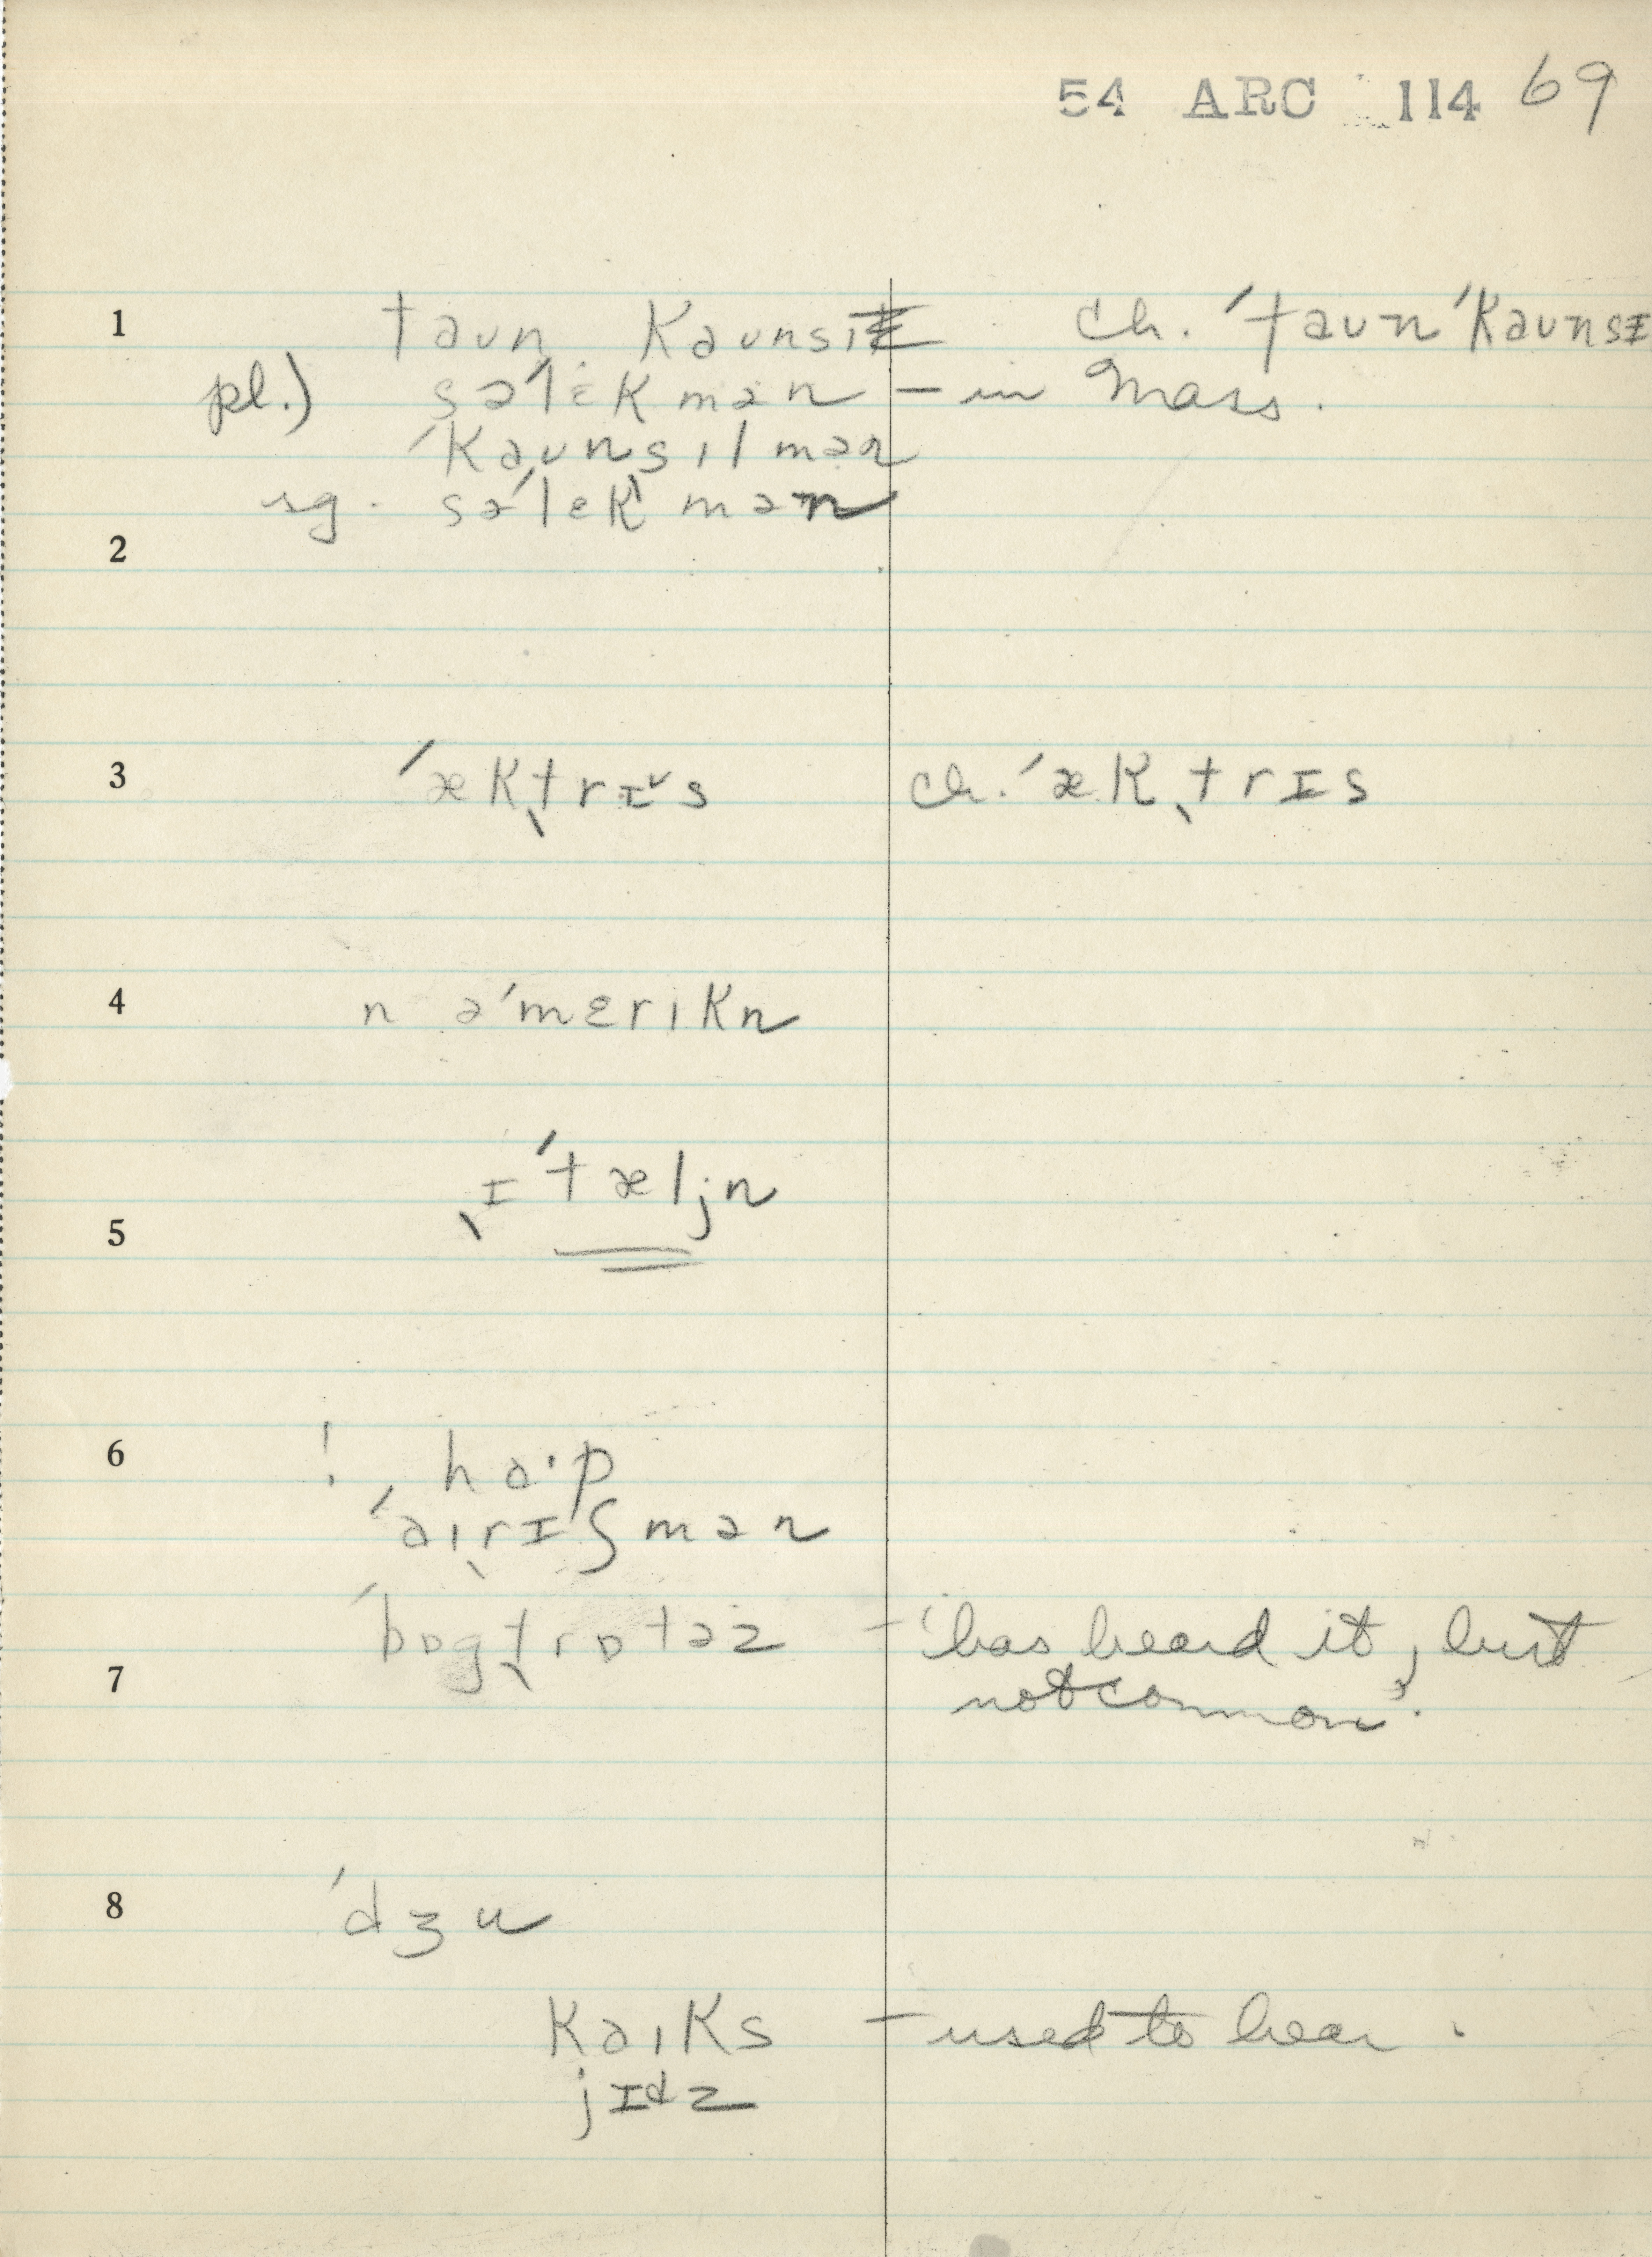 54 ARC 114 69
1 taʊn kaʊnsɪł ch. ˈtaʊn ˈkaʊnsɪ
pl.) səˈlɛkmən – in Mass.
ˈkaʊnsɪlmən
sg. səˈlekmən
2
3 ˈækˌtrɪ˅s ch. ˈækˌtrɪs
4 n əˈmɛrɪkn
ˌɪˈtæljn
5
6 ! ha·p
ˈaɪˌrɪʃmən
ˈbɒgˌtrɒtəz – 'has heard it, but
7 not common'.
8 ˈdʒu
kaɪks – used to hear.
jɪdz